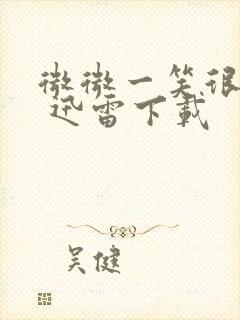 微微一笑很
迅雷下載
吴健